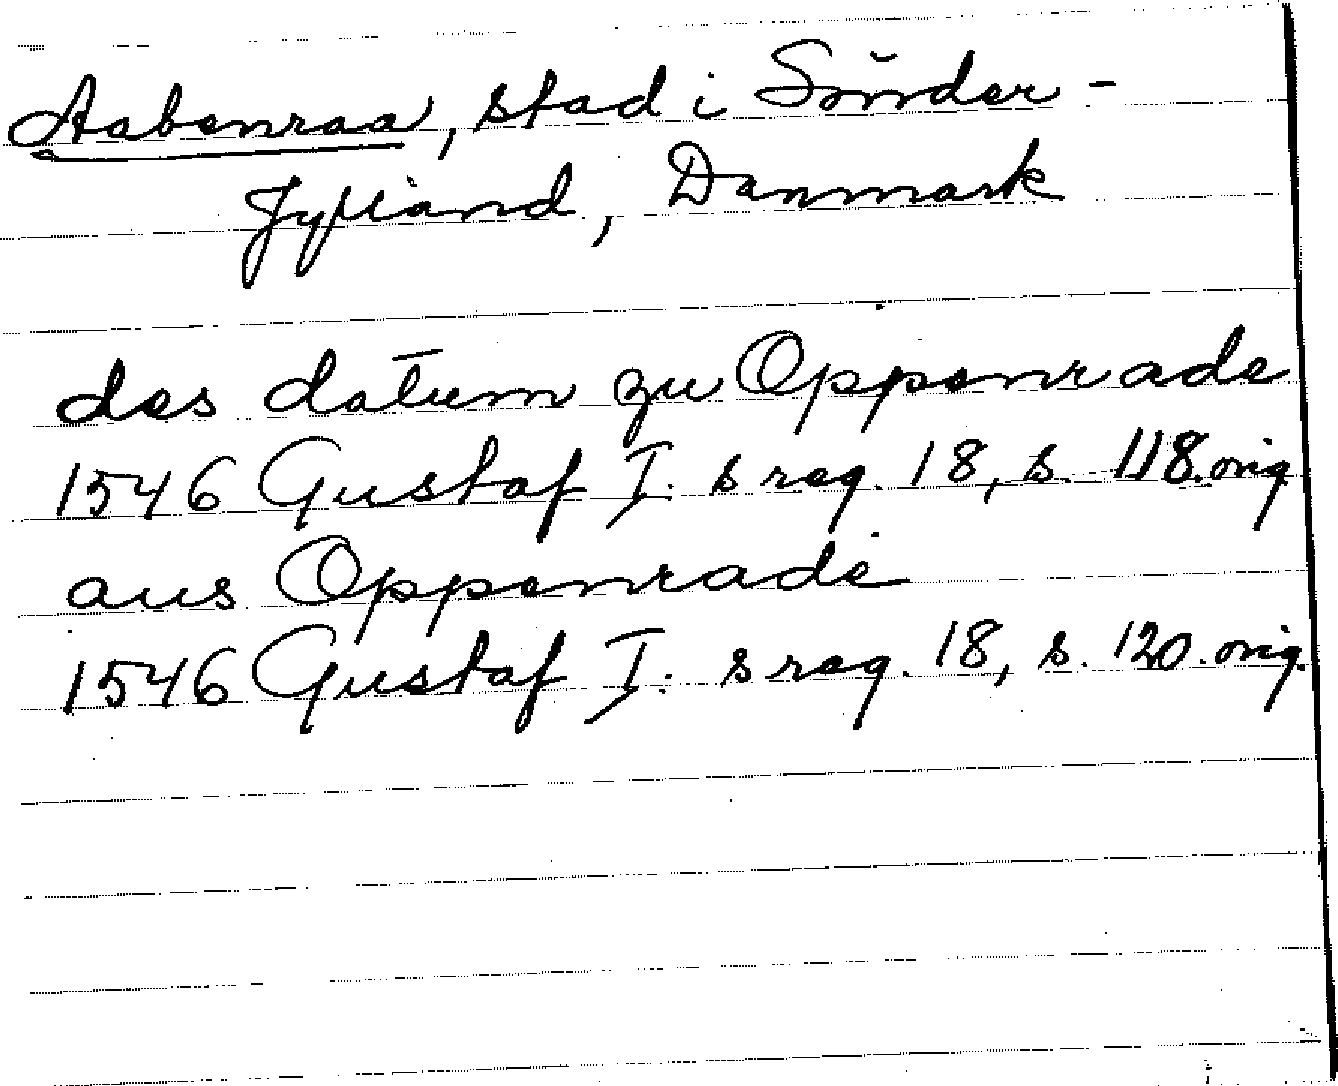 Aabenraa, stad i Sönder-
Jylland, Danmark
des datum zu Oppenrade
1546 Gustaf I:s reg. 18, s. 118. orig
aus Oppenrade
1546 Gustaf I:s reg. 18, s. 120. orig.